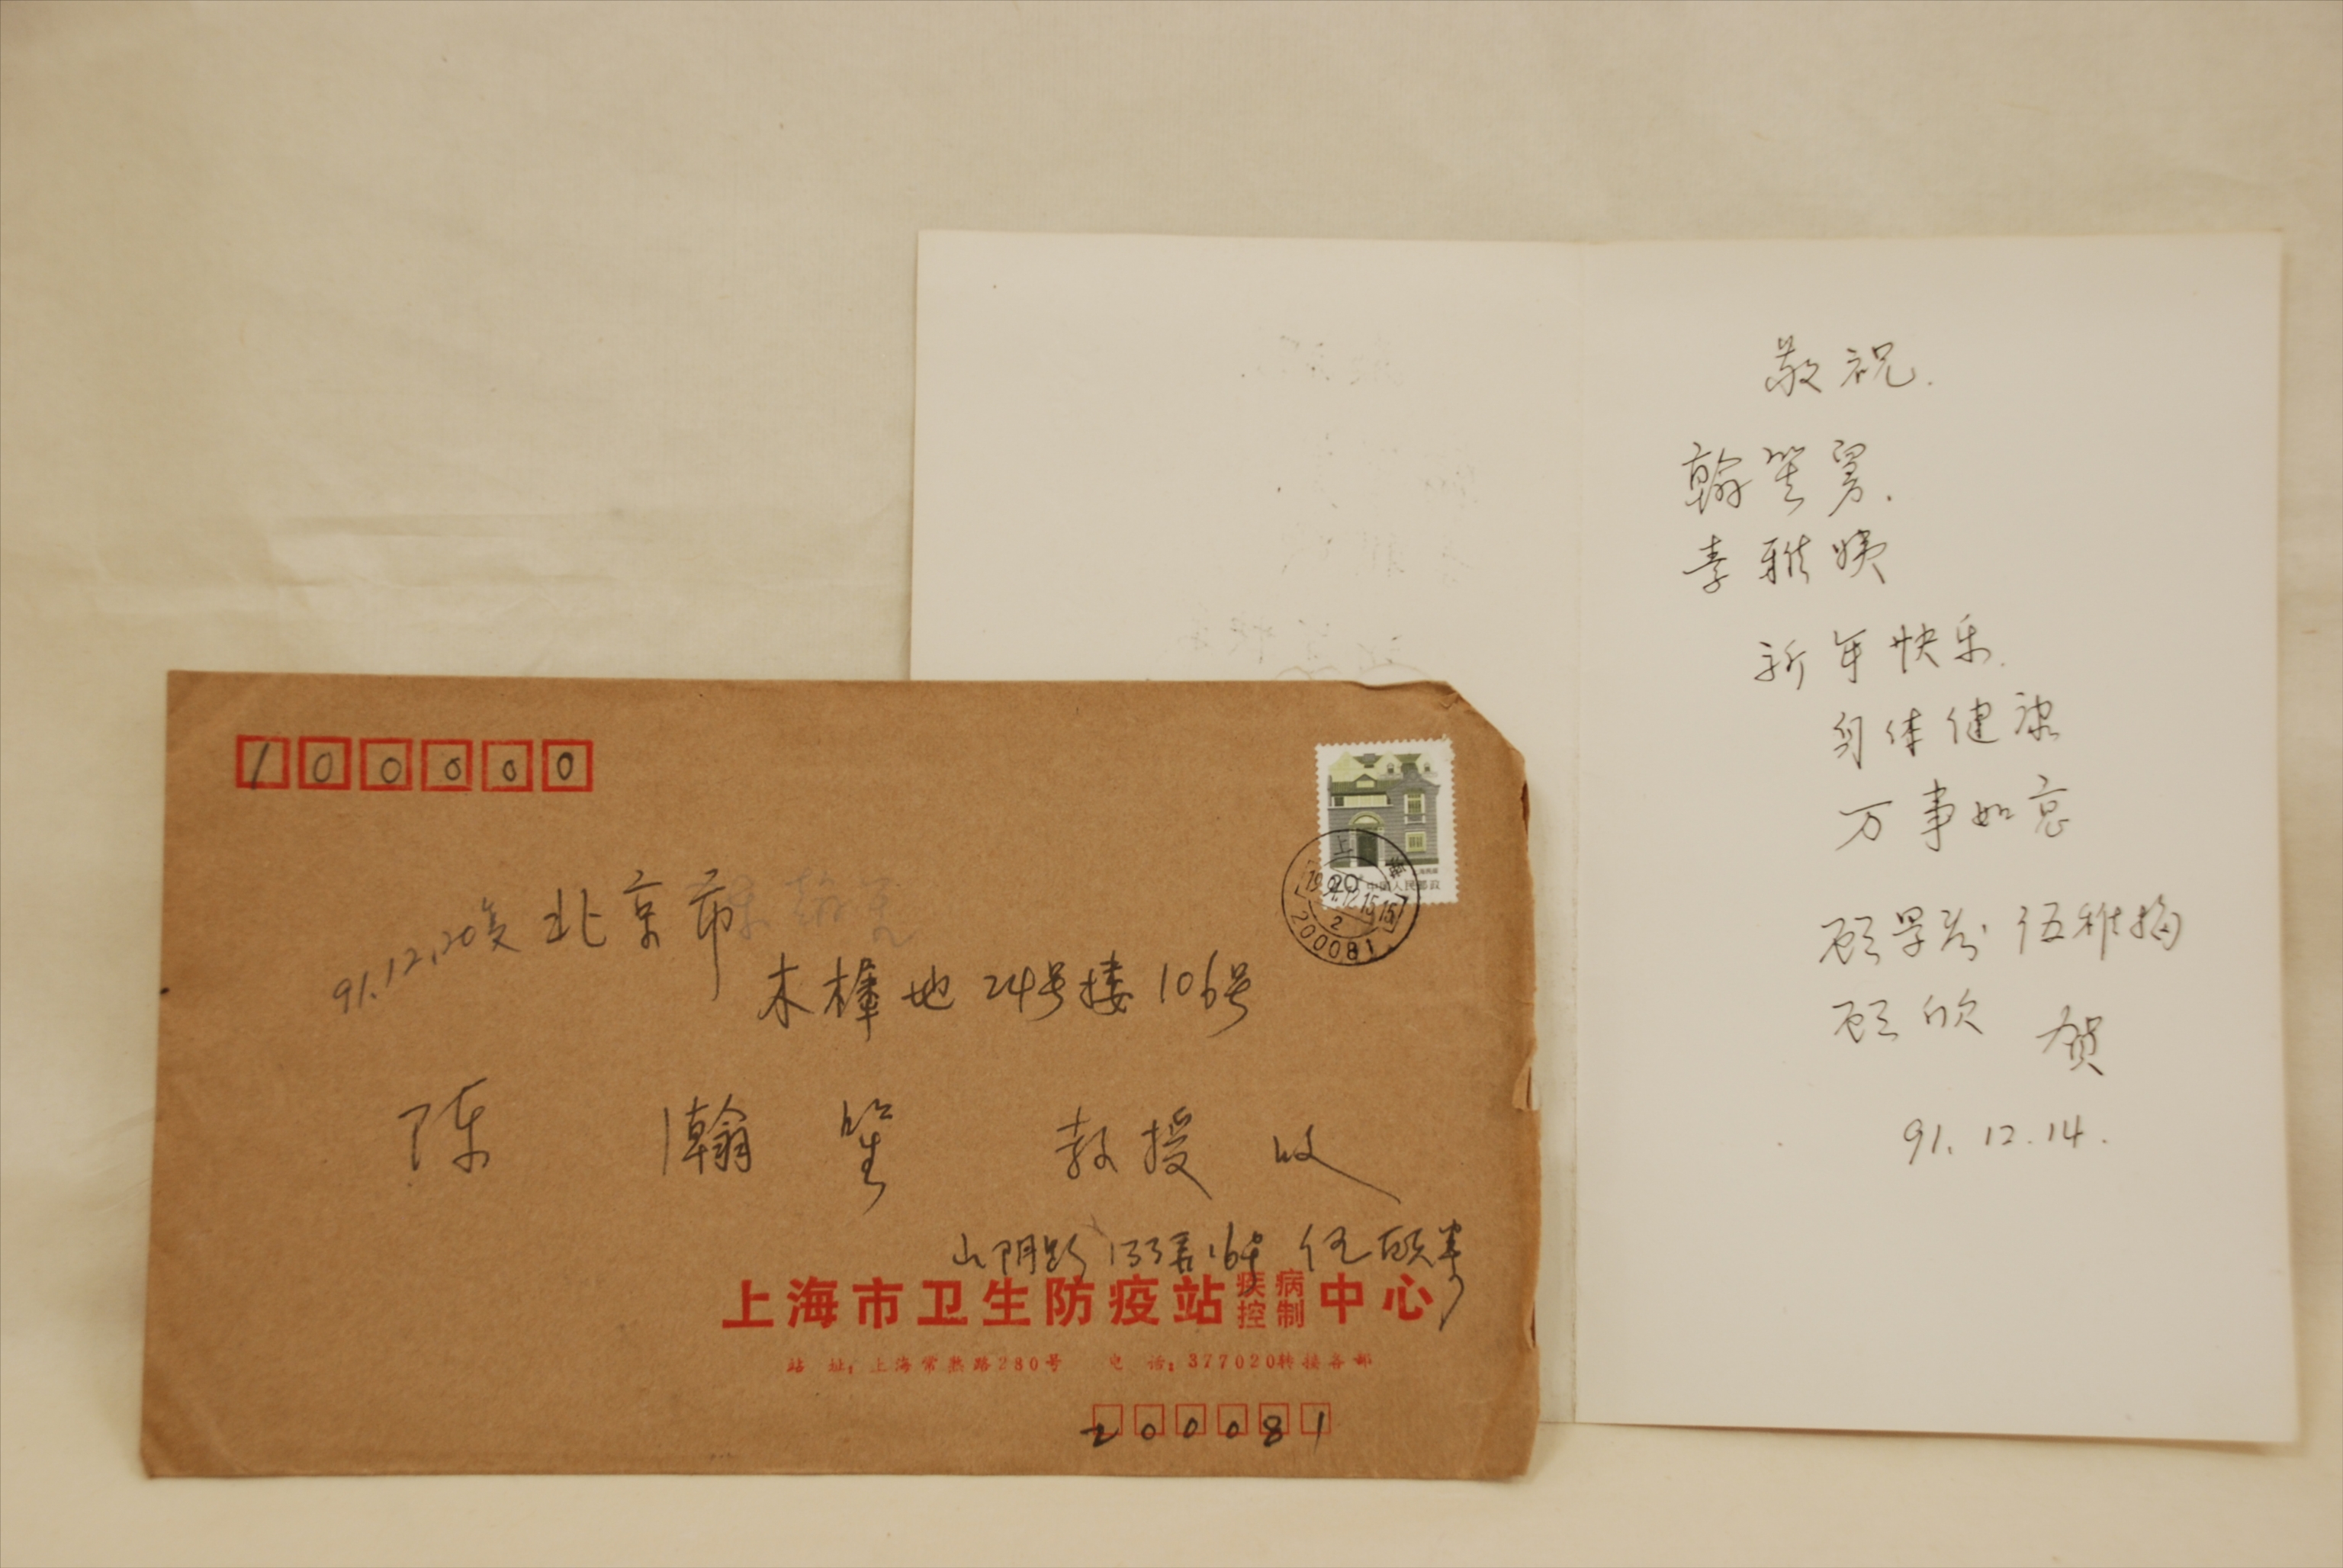 100000
91.12.20复
北京市
木樨地24号楼106号
陈翰笙 教授 收
山阴路133弄16号 伍顾
上海市卫生防疫站疾病控制中心
站 址：上海常熟路280号 电 话：377020转接各部
200081
上海
1991.12.15.15
2
200081
20
中国人民邮政
上海民居
敬祝.
翰笙舅.
素雅姨
新年快乐.
身体健康
万事如意
顾学 伍雅梅
顾欣 贺
91.12.14.